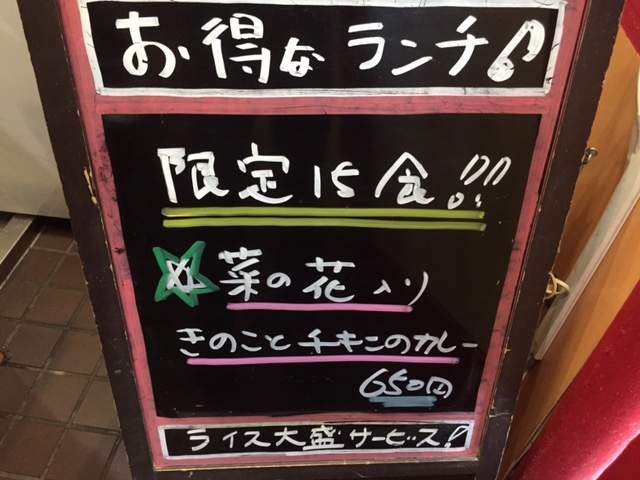 お得なランチ♪
限定15食!!!
☆菜の花入り
きのことチキンのカレー
650円
ライス大盛サービス!